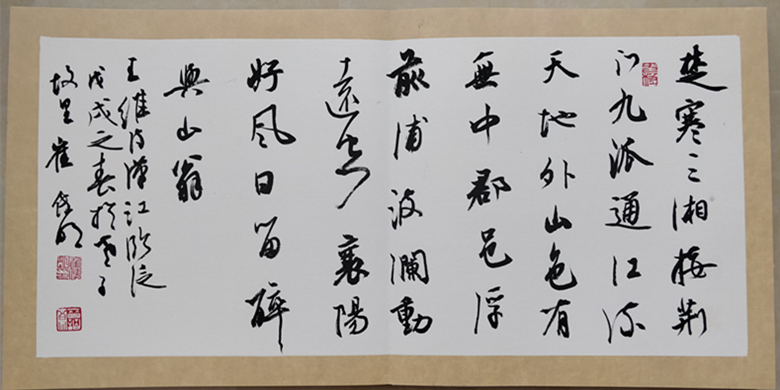 楚寒三湘接荆
门九派通江流
天地外山色有
無中郡邑浮
前浦波瀾動
遠空襄陽
好风日留醉
與山翁
王維诗漢江临泛
戊戌之春於老子
故里崔